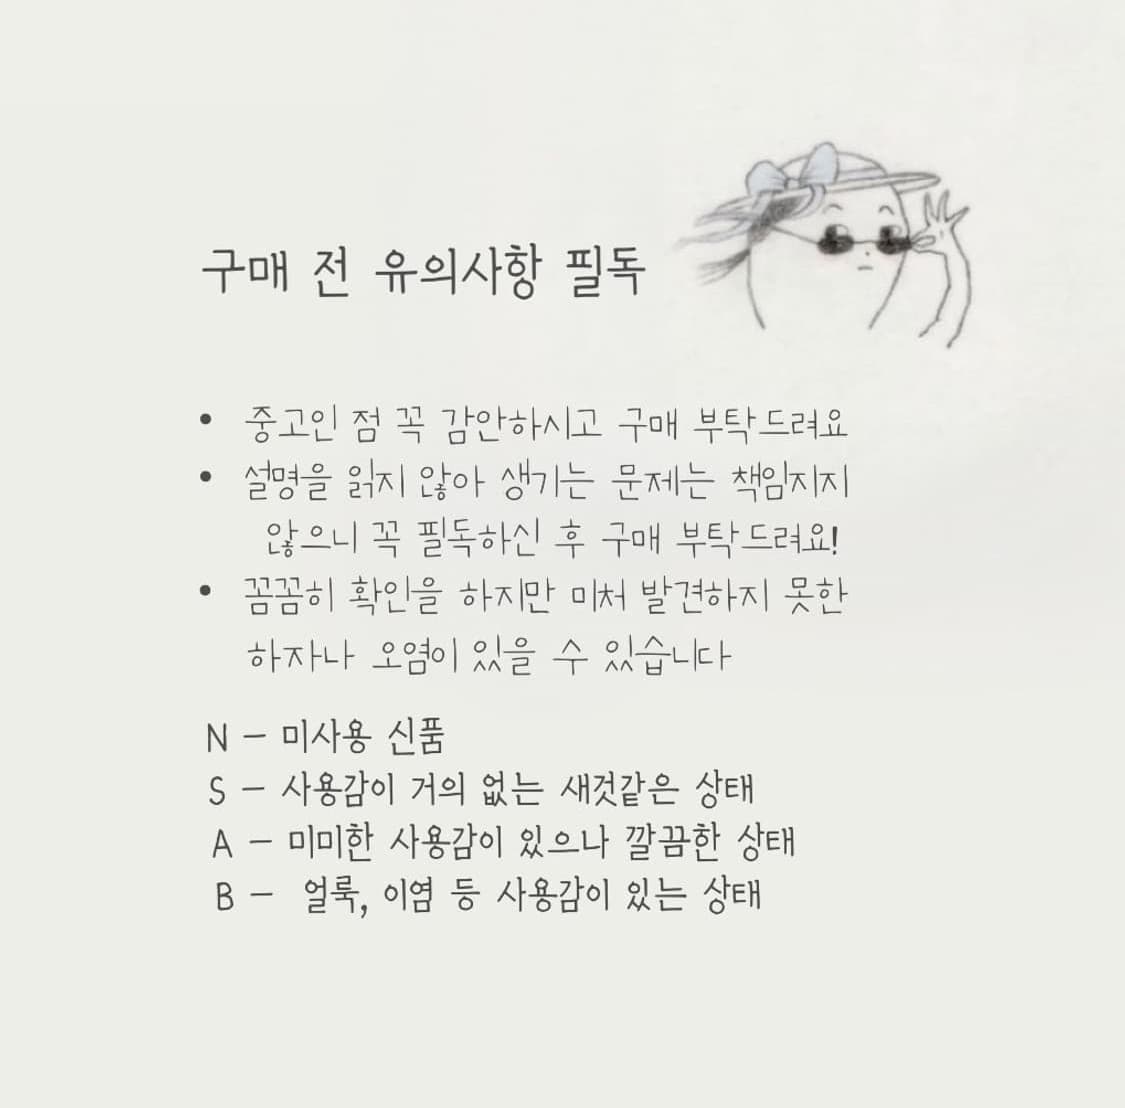 구매 전 유의사항 필독
• 중고인 점 꼭 감안하시고 구매 부탁드려요
• 설명을 읽지 않아 생기는 문제는 책임지지
않으니 꼭 필독하신 후 구매 부탁드려요!
• 꼼꼼히 확인을 하지만 미처 발견하지 못한
하자나 오염이 있을 수 있습니다
N - 미사용 신품
S - 사용감이 거의 없는 새것같은 상태
A - 미미한 사용감이 있으나 깔끔한 상태
B - 얼룩, 이염 등 사용감이 있는 상태